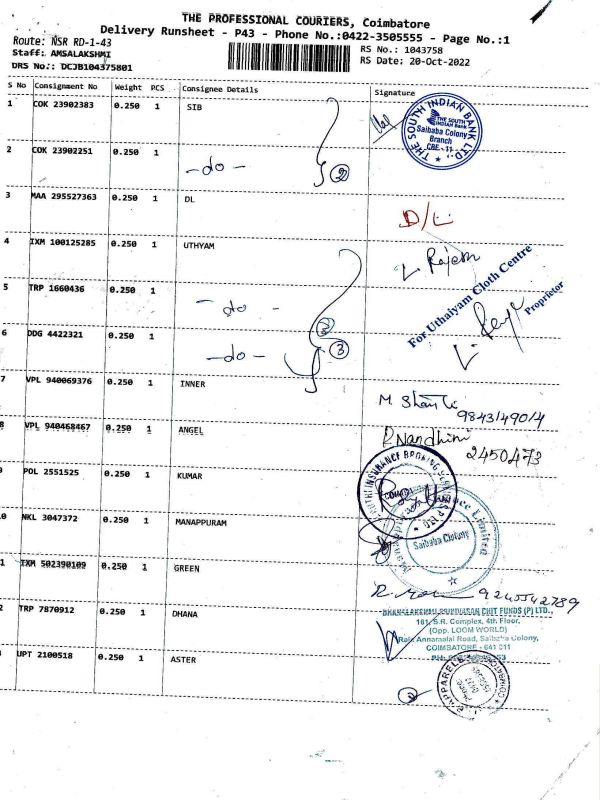 THE PROFESSIONAL COURIERS, Coimbatore
Delivery Runsheet - P43 - Phone No.:0422-3505555 - Page No.:1
Route: NSR RD-1-43
Staff: AMSALAKSHMI
DRS No.: DCJB104375801
RS No.: 1043758
RS Date: 20-Oct-2022
S No Consignment No Weight PCS Consignee Details Signature
1 COK 23902383 0.250 1 SIB
THE SOUTH INDIAN BANK LTD.
THE SOUTH
INDIAN Bank
Saibaba Colony
Branch
CBE - 11
2 COK 23902251 0.250 1 -do- 2
3 MAA 295527363 0.250 1 DL D/L
4 IXM 100125285 0.250 1 UTHYAM Rajesh
For Uthaiyam Cloth Centre
Proprietor
5 TRP 1660436 0.250 1 -do-
6 DDG 4422321 0.250 1 -do- 3
7 VPL 940069376 0.250 1 INNER M Shanti
9843149014
8 VPL 940468467 0.250 1 ANGEL P. Nandhini
2450473
9 POL 2551525 0.250 1 KUMAR
INSURANCE BROKING
0 NKL 3047372 0.250 1 MANAPPURAM
Saibaba Colony
Limited
1 IXM 502390109 0.250 1 GREEN
9245542789
2 TRP 7870912 0.250 1 DHANA
CHIT FUNDS (P) LTD.,
181, S.R. Complex, 4th Floor,
(Opp. LOOM WORLD)
Annamalai Road, Saibaba Colony,
COIMBATORE - 641 011
UPT 2100518 0.250 1 ASTER
APPARELS